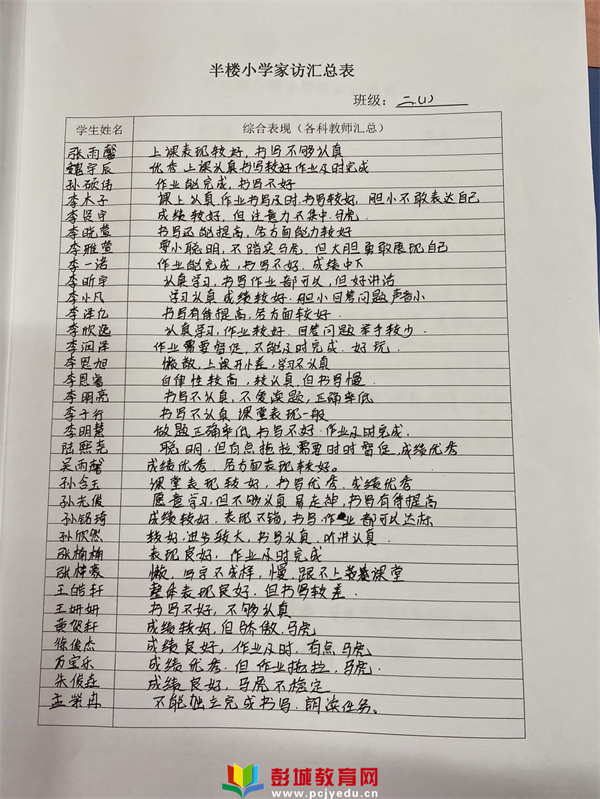 半楼小学家访汇总表
班级：二.(1)
学生姓名 综合表现（各科教师汇总）
张雨馨 上课表现较好，书写不够认真
魏宇辰 优秀 上课认真书写较好 作业及时完成
孙硕伟 作业能完成，书写不好
李木子 课上认真，作业书写及时，书写较好，胆小不敢表达自己
李贤宇 成绩较好，但注意力不集中.马虎.
李晓萱 书写还能提高，各方面能力较好
李雅萱 耍小聪明，不踏实马虎，但大胆勇敢展现自己
李一诺 作业能完成，书写不好.成绩中下
李昕宇 认真学习，书写作业都可以，但好讲话
李小凡 学习认真成绩较好.胆小回答问题声音小
李泽亿 书写有待提高，各方面较好.
李欣逸 认真学习，作业较好.回答问题举手较少.
李润泽 作业需要督促，不能及时完成.好玩.
李恩旭 懒散，上课开小差，学习不认真
李恩睿 自律性较高，较认真，但书写慢.
李明亮 书写不认真，不爱读题，正确率低
李子行 书写不认真 课堂表现一般
李明慧 做题正确率低，书写不好.作业及时完成.
陆熙尧 聪明，但有点拖拉需要时时督促.成绩优秀
吴雨馨 成绩优秀，各方面表现较好。
孙含玉 课堂表现较好，书写优秀.成绩优秀
孙光俊 愿意学习，但不够认真 易走神，书写有待提高
孙铭琦 成绩较好.表现不错，书写.作业都可以达标
孙欣然 较好，进步较大，书写认真，听讲认真.
张楠楠 表现良好，作业及时完成
张梓豪 懒，写字不成样，慢，跟不上 课堂
王皓轩 整体表现良好，但书写较差.
王妍妍 书写不好，不够认真
俊轩 成绩较好，但骄傲，马虎
徐俊杰 成绩良好，作业及时.有点马虎
万宝乐 成绩优秀.但作业拖拉，马虎.
朱俊垚 成绩良好，马虎不稳定
孟荣冉 不能独立完成书写.朗读任务。
彭城教育网
www.pcjyedu.cn